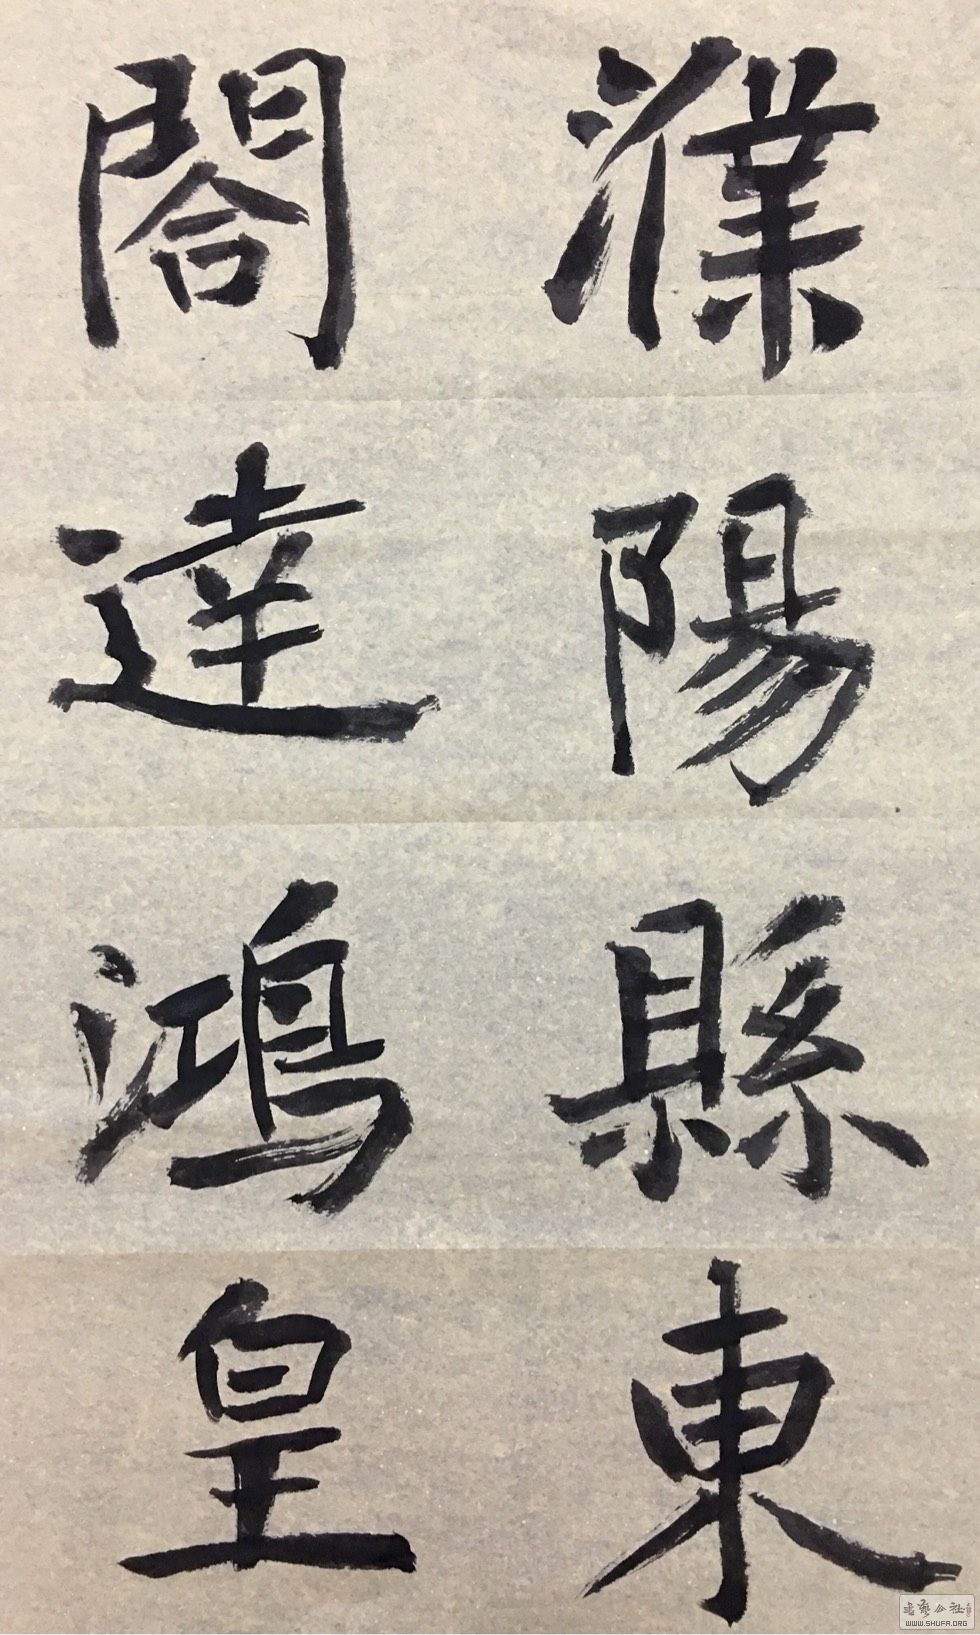 濮陽縣東
閤達鴻皇
書藝公社
WWW.SHUFA.ORG